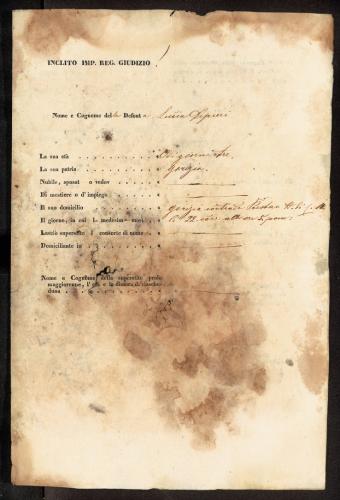 INCLITO IMP. REG. GIUDIZIO
Nome e Cognome della Defunta Luisa
La sua età Di giorni tre.
La sua patria Gorizia.
Nubile, sposat o vedov
Di mestiere o d'impiego
Il suo domicilio gorizia contrada
Il giorno, in cui la medesima morì Li 22 alle ore
Lascia superstite consorte di nome
Domiciliante in
Nome e Cognome della superstite prole
maggiorenne, l'età e la dimora di ciasche-
duna